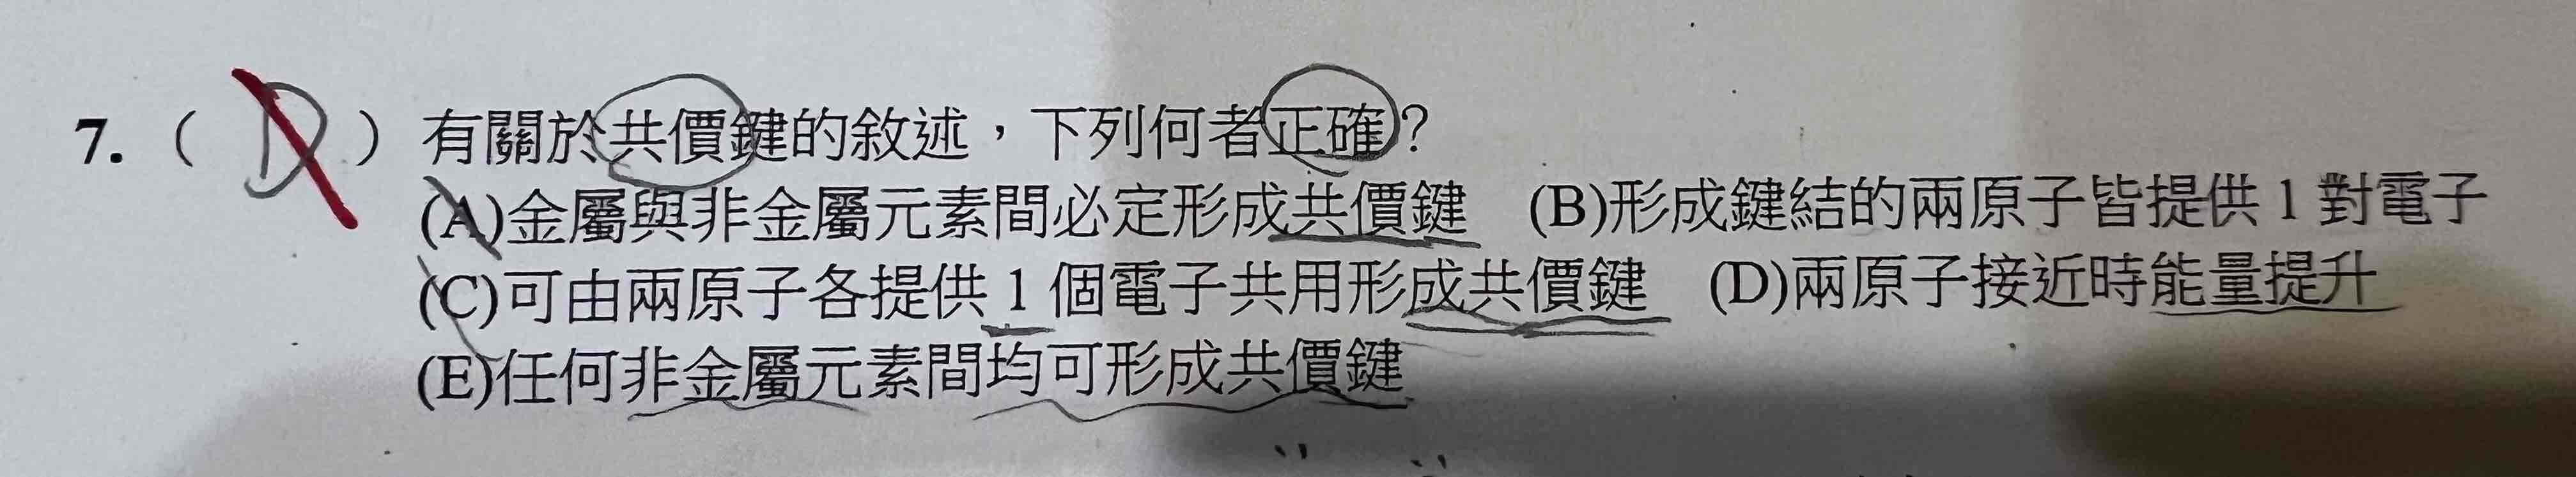 7. ( D ) 有關於共價鍵的敘述，下列何者正確？
(A)金屬與非金屬元素間必定形成共價鍵 (B)形成鍵結的兩原子皆提供 1 對電子
(C)可由兩原子各提供 1 個電子共用形成共價鍵 (D)兩原子接近時能量提升
(E)任何非金屬元素間均可形成共價鍵